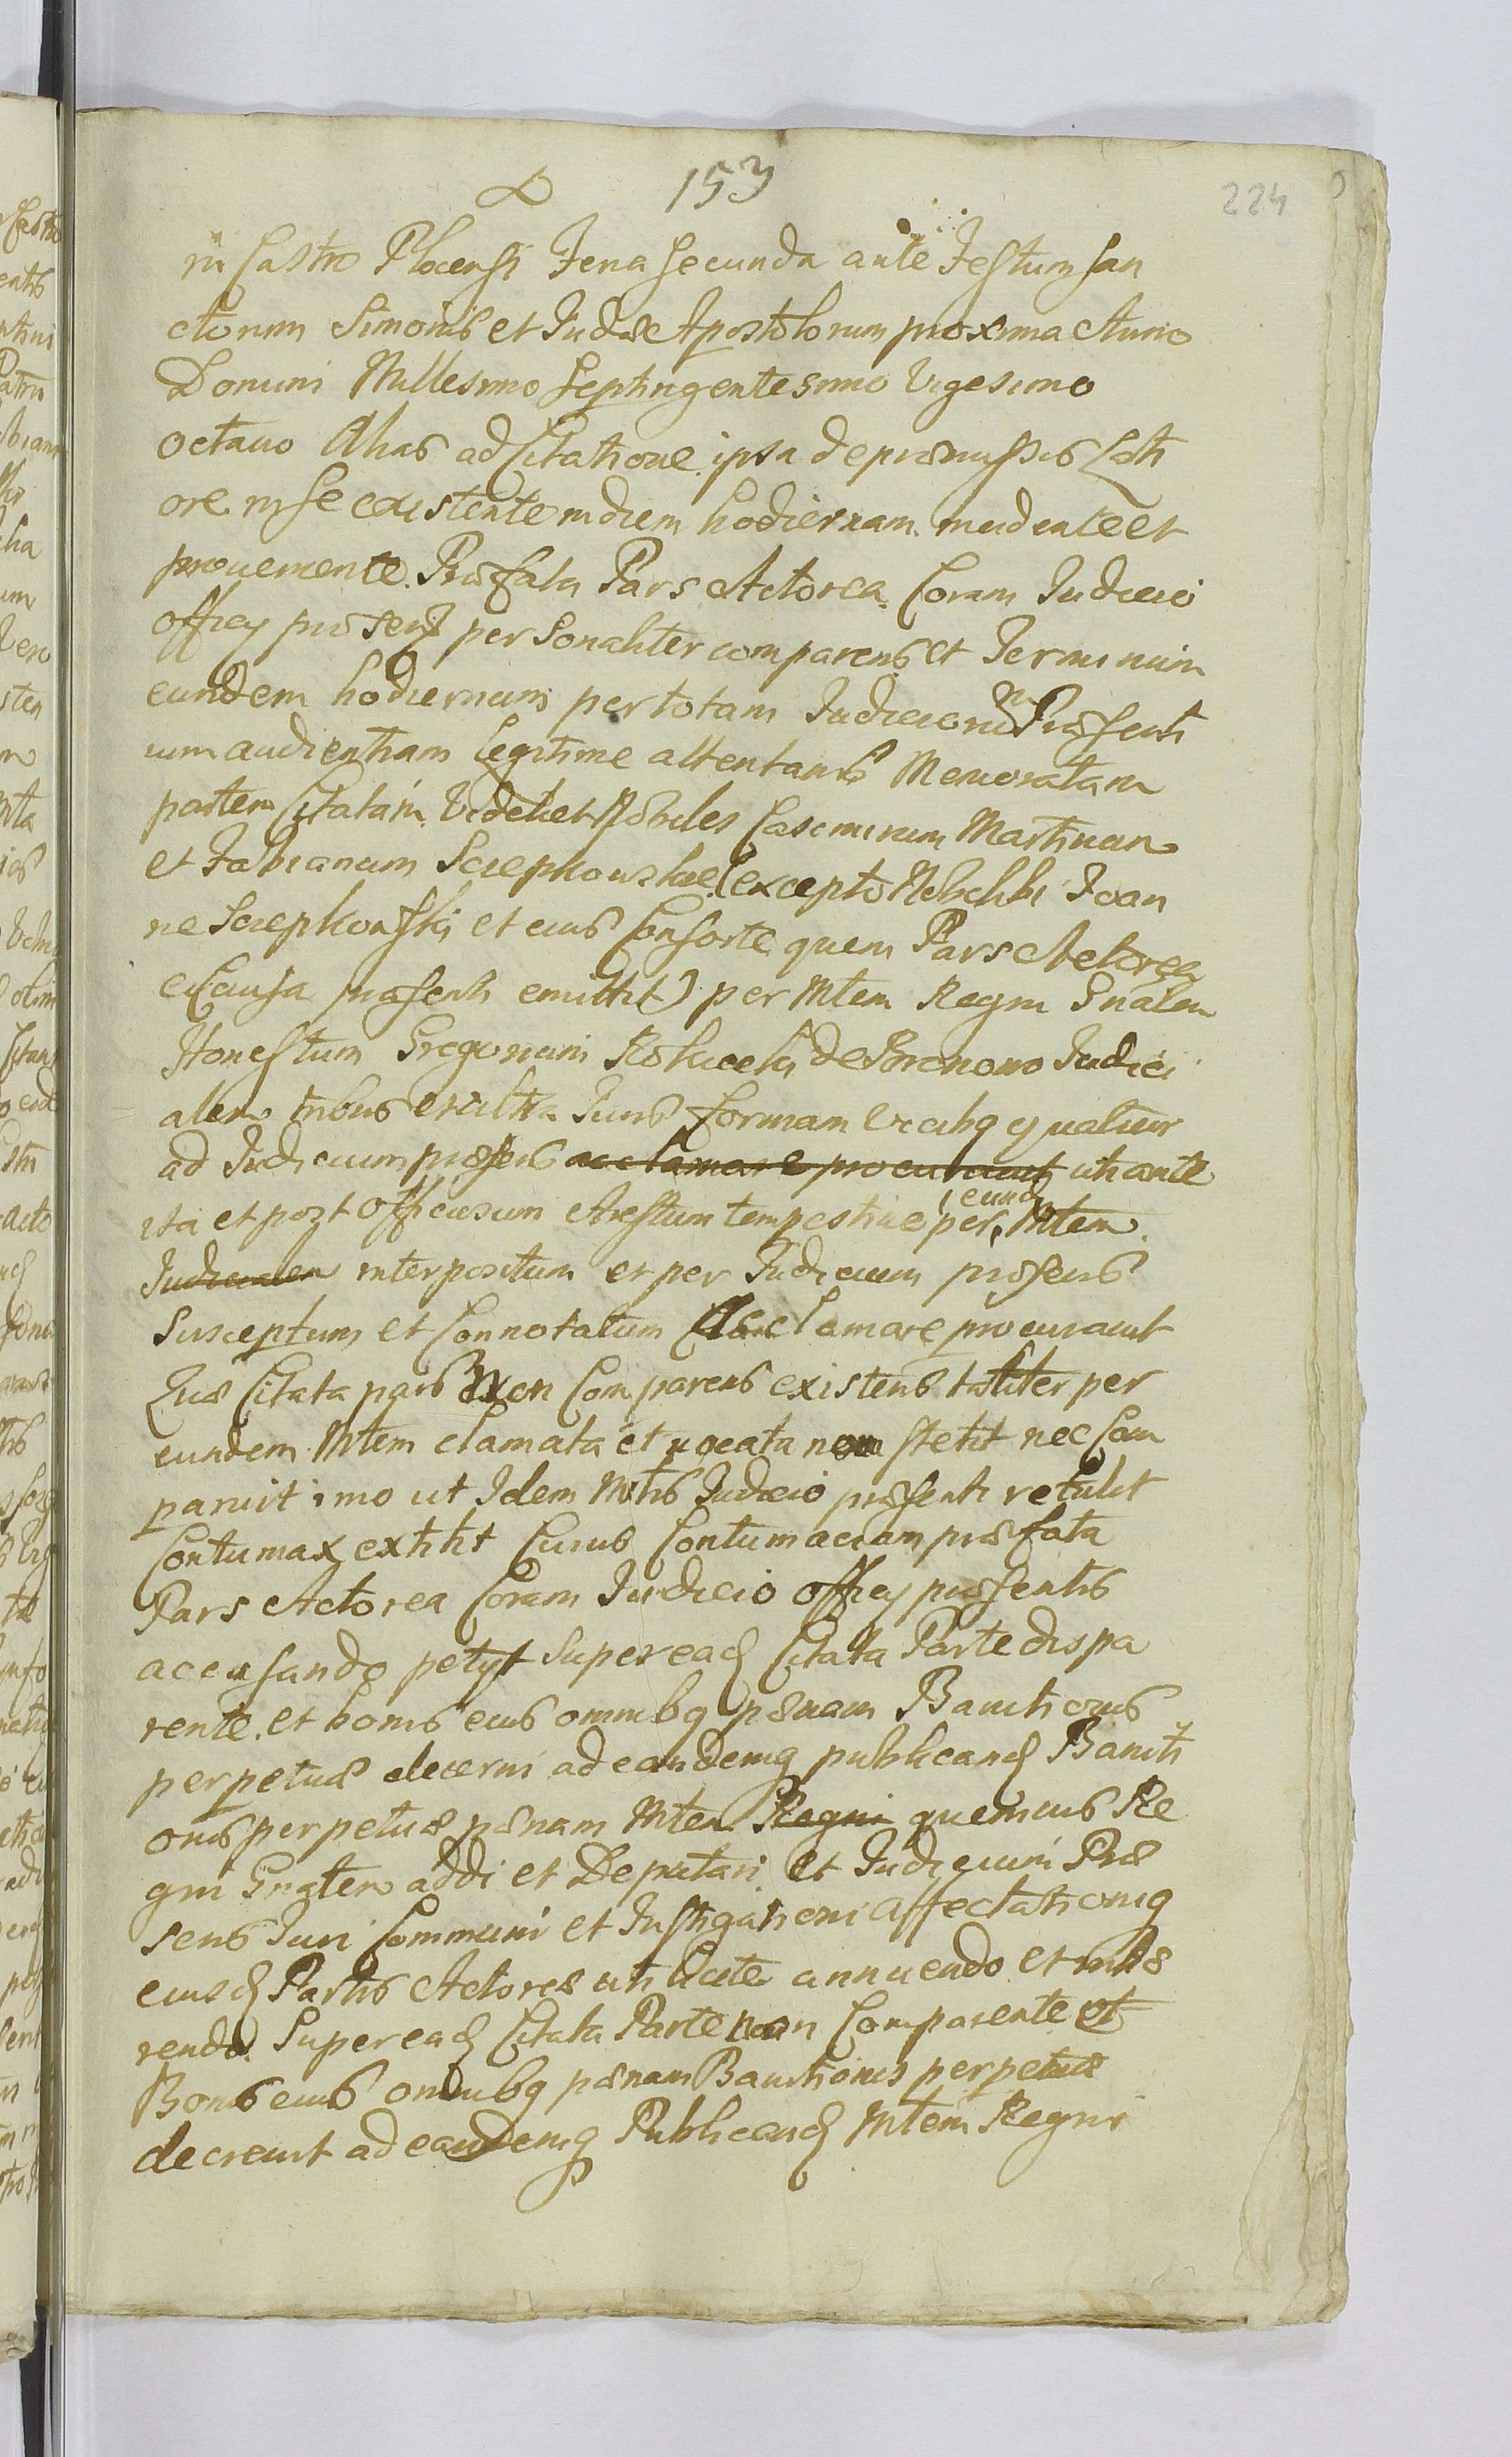 153
224
in Castro Plocensi Feria secunda ante Festum san
ctorum Simonis et Judæ Apostolorum proxima Anno
Domini Millesimo septingentesimo Vigesimo
octavo Alias ad Citatione ipsa de præmissis Lati
ore in se existente in diem hodiernam incidente et
proveniente. Præfata Pars Actorea Coram Judicio
officy præsens personaliter comparens et Terminum
eundem hodiernum per totam Judiciorum Præsenti
um audientiam legitime attentans Memoratam
partem Citatam Videlicet Nobiles Casimirum Martinum
et Fabianum Sciepkowskie (excepto Nobili Joan
ne Sciepkowski et eius Consorte quem Pars Actorea
e Causa præsenti emittit) per Mtem Regni Gnalem
Honestum Gregorium de Judici
alem tribus ex ultra Juris formam Vicibq qualiter
ad Judicium præsens acclamare procuravit uti ante
ita et post officiosum Arestum tempestive per eund Mtem
Judicialem interpositum et per Judicium præsens
Susceptum et Connotatum Acclamare procuravit
Quæ Citata pars Non Comparens existens taliter per
eundem Mtem clamata et vocata non stetit nec Com
paruit imo ut Idem Mtis Judicio præsenti retulit
Contumax extitit Cuius Contumaciam præfata
Pars Actorea Coram Judicio officy præsentis
accusando petyt super ead Citata Parte dispa
rente et bonis eius omnibq pænam Banitionis
perpetuæ decerni ad eandemq publicand Baniti
onis perpetuæ pænam Mtem Regni quemvis Re
gni Gnatem addi et Deputari et Judicium Præ
sens Juri Communi et Instigationi Affectationiq
eiusd Partis Actoreæ uti licite annuendo et inhæ
rendo Super ead Citata Parte non Comparente et
Bonis eius omnibq pænam Banitionis perpetuæ
decrevit ad eandemq Publicand Mtem Regni